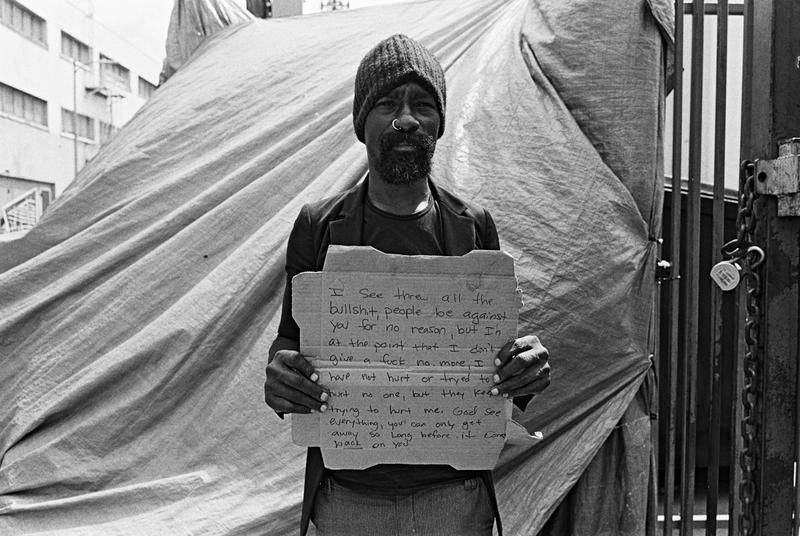 I See threw all the
bullsht, people be against
you for no reason, but I'm
at the point that I don't
give a fuck no more, I
have not hurt or tryed to
hurt no one, but they keep
trying to hurt me. God see
everything, you can only get
away so long before it come
back on you